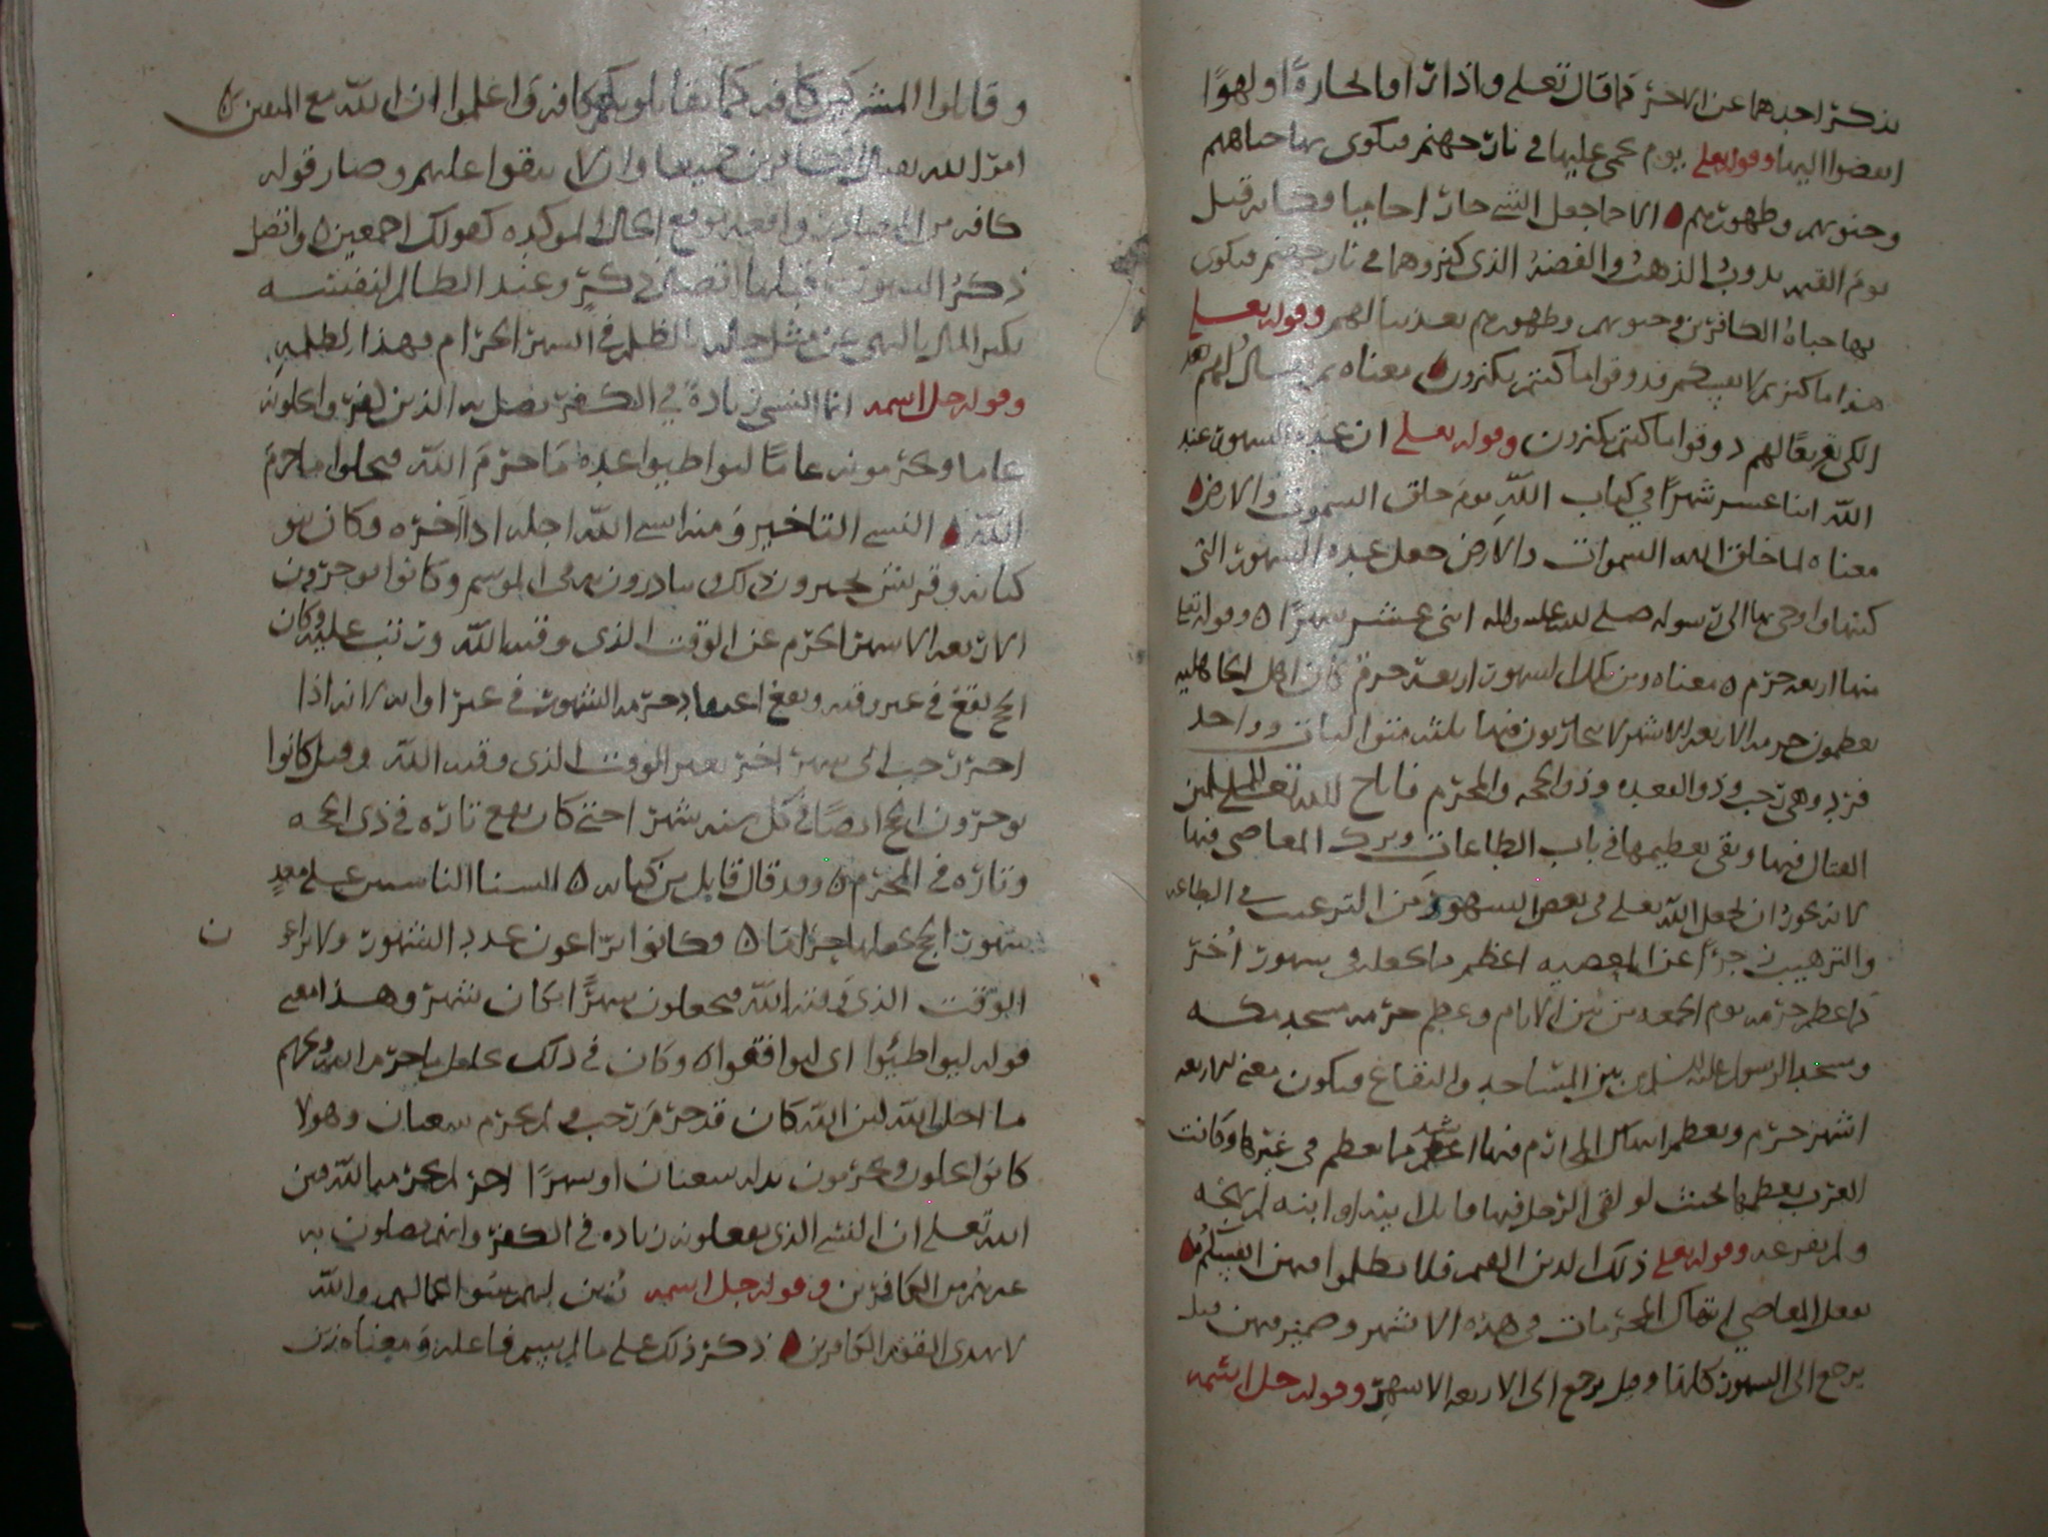 بذكر احدهما عن الاخر كما قال تعلى واذا راوا تجارة او لهوا
انفضوا اليها وقوله تعلى يوم يحمى عليها في نار جهنم فتكوى بها جباههم
وجنوبهم وظهورهم الاحما جعل الشي حارا حاميا فكانه قيل
يوم القيمه يذوب الذهب والفضة الذي كنزوهما في نار جهنم فيكوى
بها جباه الكافرين وجنوبهم وظهورهم تعذيبا لهم وقوله تعلى
هذا ما كنزتم لانفسكم فذوقوا ما كنتم تكنزون معناه ثم يقال لهم هذا
الكي تقريعا لهم ذوقوا ما كنتم تكنزون وقوله تعلى ان عدة الشهور عند
الله اثنا عشر شهرا في كتاب الله يوم خلق السموت والارض
معناه لما خلق الله السموات والارض جعل عدة الشهور التي
كتبها واوحى بها الى رسوله صلى الله عليه واله اثنى عشر شهرا وقوله تعلى
منها اربعه حرم معناه ومن تلك الشهور اربعة حرم كان اهل الجاهليه
يعظمون حرمه الاربعه الاشهر لا يحاربون فيها ثلثه متواليات وواحد
فرد وهي رجب وذو القعده وذو الحجه والمحرم فاباح الله تعلى للمسلمين
القتال فيها وبقى تعظيمها في باب الطاعات وترك المعاصي فيها
لانه يجوز ان يجعل الله تعلى في بعض الشهور من الترغيب في الطاعه
والترهيب زجرا عن المعصيه اعظم ما يجعله في شهور اخر
كما عظم حرمه يوم الجمعه من بين الايام وعظم حرمه مسجد مكه
ومسجد الرسول عليه السلم من بين المساجد والبقاع فيكون معنى اربعه
اشهر حرم وتعظم انتهاك المحارم فيها اشد مما يعظم في غيرها وكانت
العرب تعظمها بحيث لو لقي الرجل فيها قاتل ابيه او ابنه لم يهجه
ولم يفزعه وقوله تعلى ذلك الدين القيم فلا تظلموا فيهن انفسكم
بفعل المعاصي انتهاك المحرمات في هذه الاشهر وضمير فيهن قيل
يرجع الى الشهور كلها وقيل يرجع الى الاربعه الاشهر وقوله جل اسمه
وقاتلوا المشركين كافه كما يقاتلونكم كافه واعلموا ان الله مع المتقين
امر الله بقتال الكافرين جميعا وان لا يبقوا عليهم وصار قوله
كافه من المصادر واقعه موقع الحال الموكده كقولك اجمعين واتصل
ذكر الشهور بما قبلها اتصال ذكر وعيد الظالم لنفسه
بكنز المال بالنهي عن مثل حاله بالظلم في الشهر الحرام فهذا لظلمه
وقوله جل اسمه انما النسي زيادة في الكفر يضل به الذين كفروا يحلونه
عاما ويحرمونه عاما ليواطيوا عدة ما حرم الله فيحلوا ما حرم
الله النسي التاخير ومنه انسى الله اجله اذا اخره وكان بنو
كنانه وقريش يخبرون ذلك وينادرون به في الموسم وكانوا يوخرون
الاربعه الاشهر الحرم عن الوقت الذي وقته الله ورتب عليه وكان
الحج يقع في غير وقته ويقع اعتقاد حرمه الشهور في غير اوانه لانه اذا
اخر رجب الى شهر اخر بغير الوقت الذي وقته الله وقيل كانوا
يوخرون الحج ايضا في كل سنه شهرا حتى كان يقع تارة في ذي الحجه
وتارة في المحرم وقد قال قايل من كنانه السنا الناسين على معد
شهور الحل نجعلها حراما فكانوا يراعون عدد الشهور ولا يراعون
الوقت الذي وقته الله فيجعلون شهرا مكان شهر وهذا معنى
قوله ليواطيوا اي ليوافقوا وكان في ذلك تحليل ما حرم الله وتحريم
ما احل الله لان الله كان قد حرم رجب ولم يحرم شعبان وهولا
كانوا يحلونه ويحرمون بدله شعبان او شهرا اخر لم يحرمه الله فبين
الله تعلى ان النسي الذي يفعلونه زيادة في الكفر وانهم يضلون به
غيرهم من الكافرين وقوله جل اسمه زين لهم سوا اعمالهم والله
لا يهدي القوم الكافرين ذكر ذلك على ما لم يسم فاعله ومعناه زين